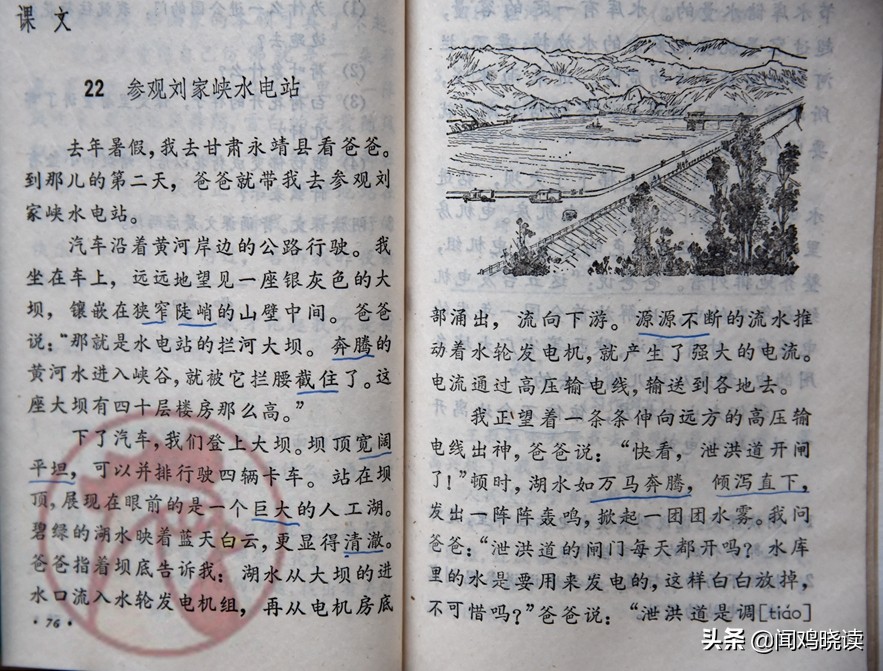 课文
22 参观刘家峡水电站
去年暑假，我去甘肃永靖县看爸爸。
到那儿的第二天，爸爸就带我去参观刘
家峡水电站。
汽车沿着黄河岸边的公路行驶。我
坐在车上，远远地望见一座银灰色的大
坝，镶嵌在狭窄陡峭的山壁中间。爸爸
说：“那就是水电站的拦河大坝。奔腾的
黄河水进入峡谷，就被它拦腰截住了。这
座大坝有四十层楼房那么高。”
下了汽车，我们登上大坝。坝顶宽阔
平坦，可以并排行驶四辆卡车。站在坝
顶，展现在眼前的是一个巨大的人工湖。
碧绿的湖水映着蓝天白云，更显得清澈。
爸爸指着坝底告诉我：湖水从大坝的进
水口流入水轮发电机组，再从电机房底
·76·
部涌出，流向下游。源源不断的流水推
动着水轮发电机，就产生了强大的电流。
电流通过高压输电线，输送到各地去。
我正望着一条条伸向远方的高压输
电线出神，爸爸说：“快看，泄洪道开闸
了！”顿时，湖水如万马奔腾，倾泻直下，
发出一阵阵轰鸣，掀起一团团水雾。我问
爸爸：“泄洪道的闸门每天都开吗？水库
里的水是要用来发电的，这样白白放掉，
不可惜吗？”爸爸说：“泄洪道是调[tiáo]
头条 @闻鸡晓读